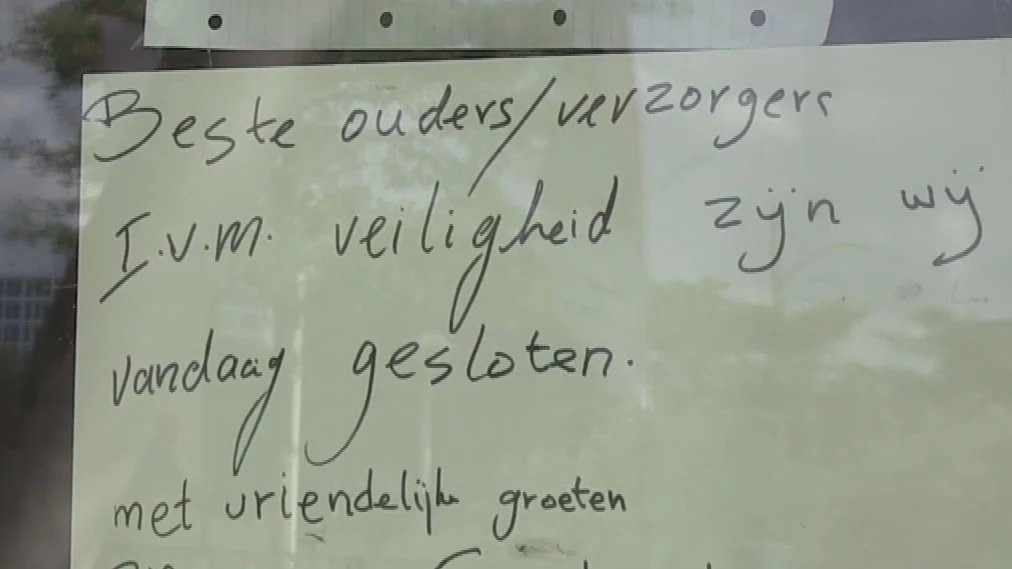 Beste ouders/verzorgers
I.v.m. veiligheid zijn wij
vandaag gesloten.
met vriendelijke groeten